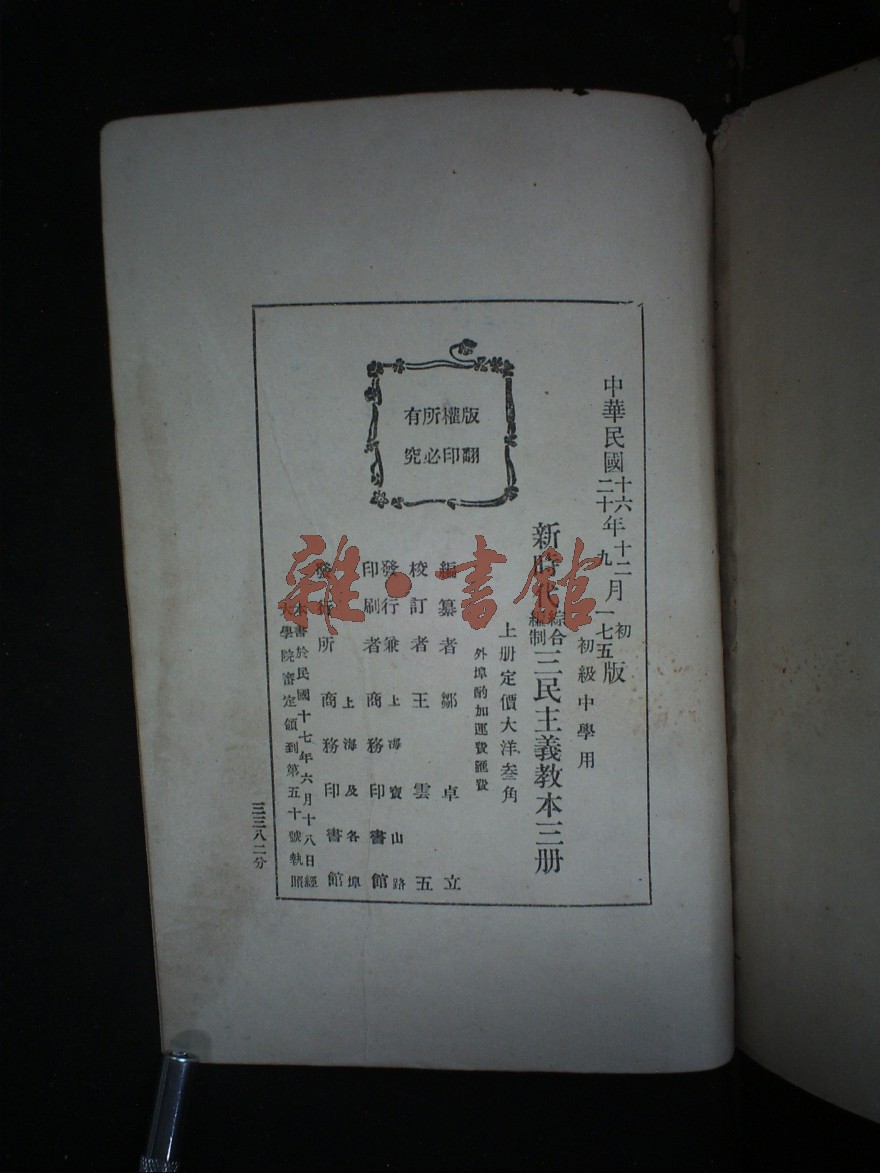 中華民國十六年十二月初版
二十年九月一七五版
初級中學用
新時代綜合編制三民主義教本三册
上册定價大洋叁角
外埠酌加運費匯費
編纂者 鄒卓立
校訂者 王雲五
發行兼印刷者 上海寶山路 商務印書館
發行所 上海及各埠 商務印書館
本書於民國十七年六月十八日經
大學院審定領到第五十號執照
版權所有
翻印必究
三三八二分
雜·書館